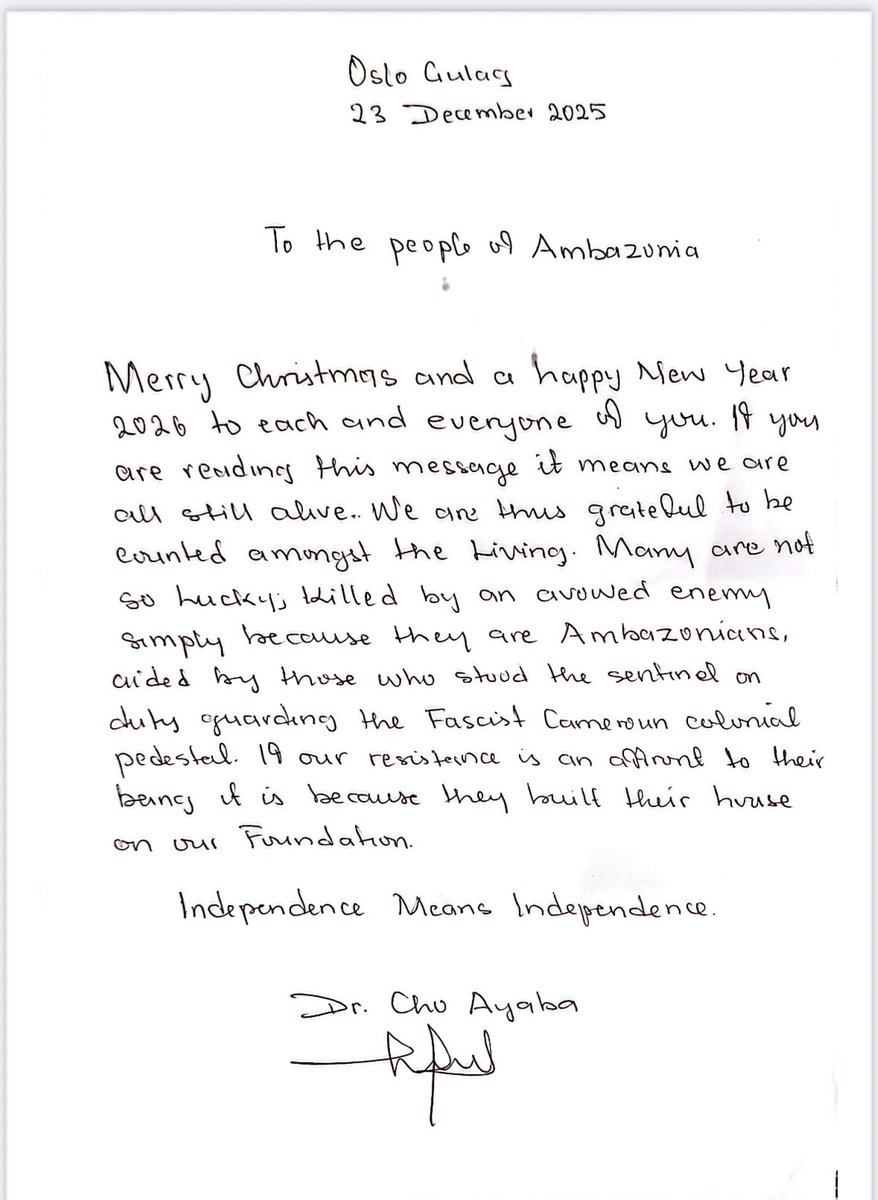 Oslo Gulag
23 December 2025
To the people of Ambazonia
Merry Christmas and a happy New Year
2026 to each and everyone of you. If you
are reading this message it means we are
all still alive.. We are thus grateful to be
counted amongst the Living. Many are not
so Lucky; killed by an avowed enemy
simply because they are Ambazonians,
aided by those who stood the sentinel on
duty guarding the Fascist Cameroun colonial
pedestal. If our resistance is an affront to their
being it is because they built their house
on our Foundation.
Independence Means Independence.
Dr. Cho Ayaba